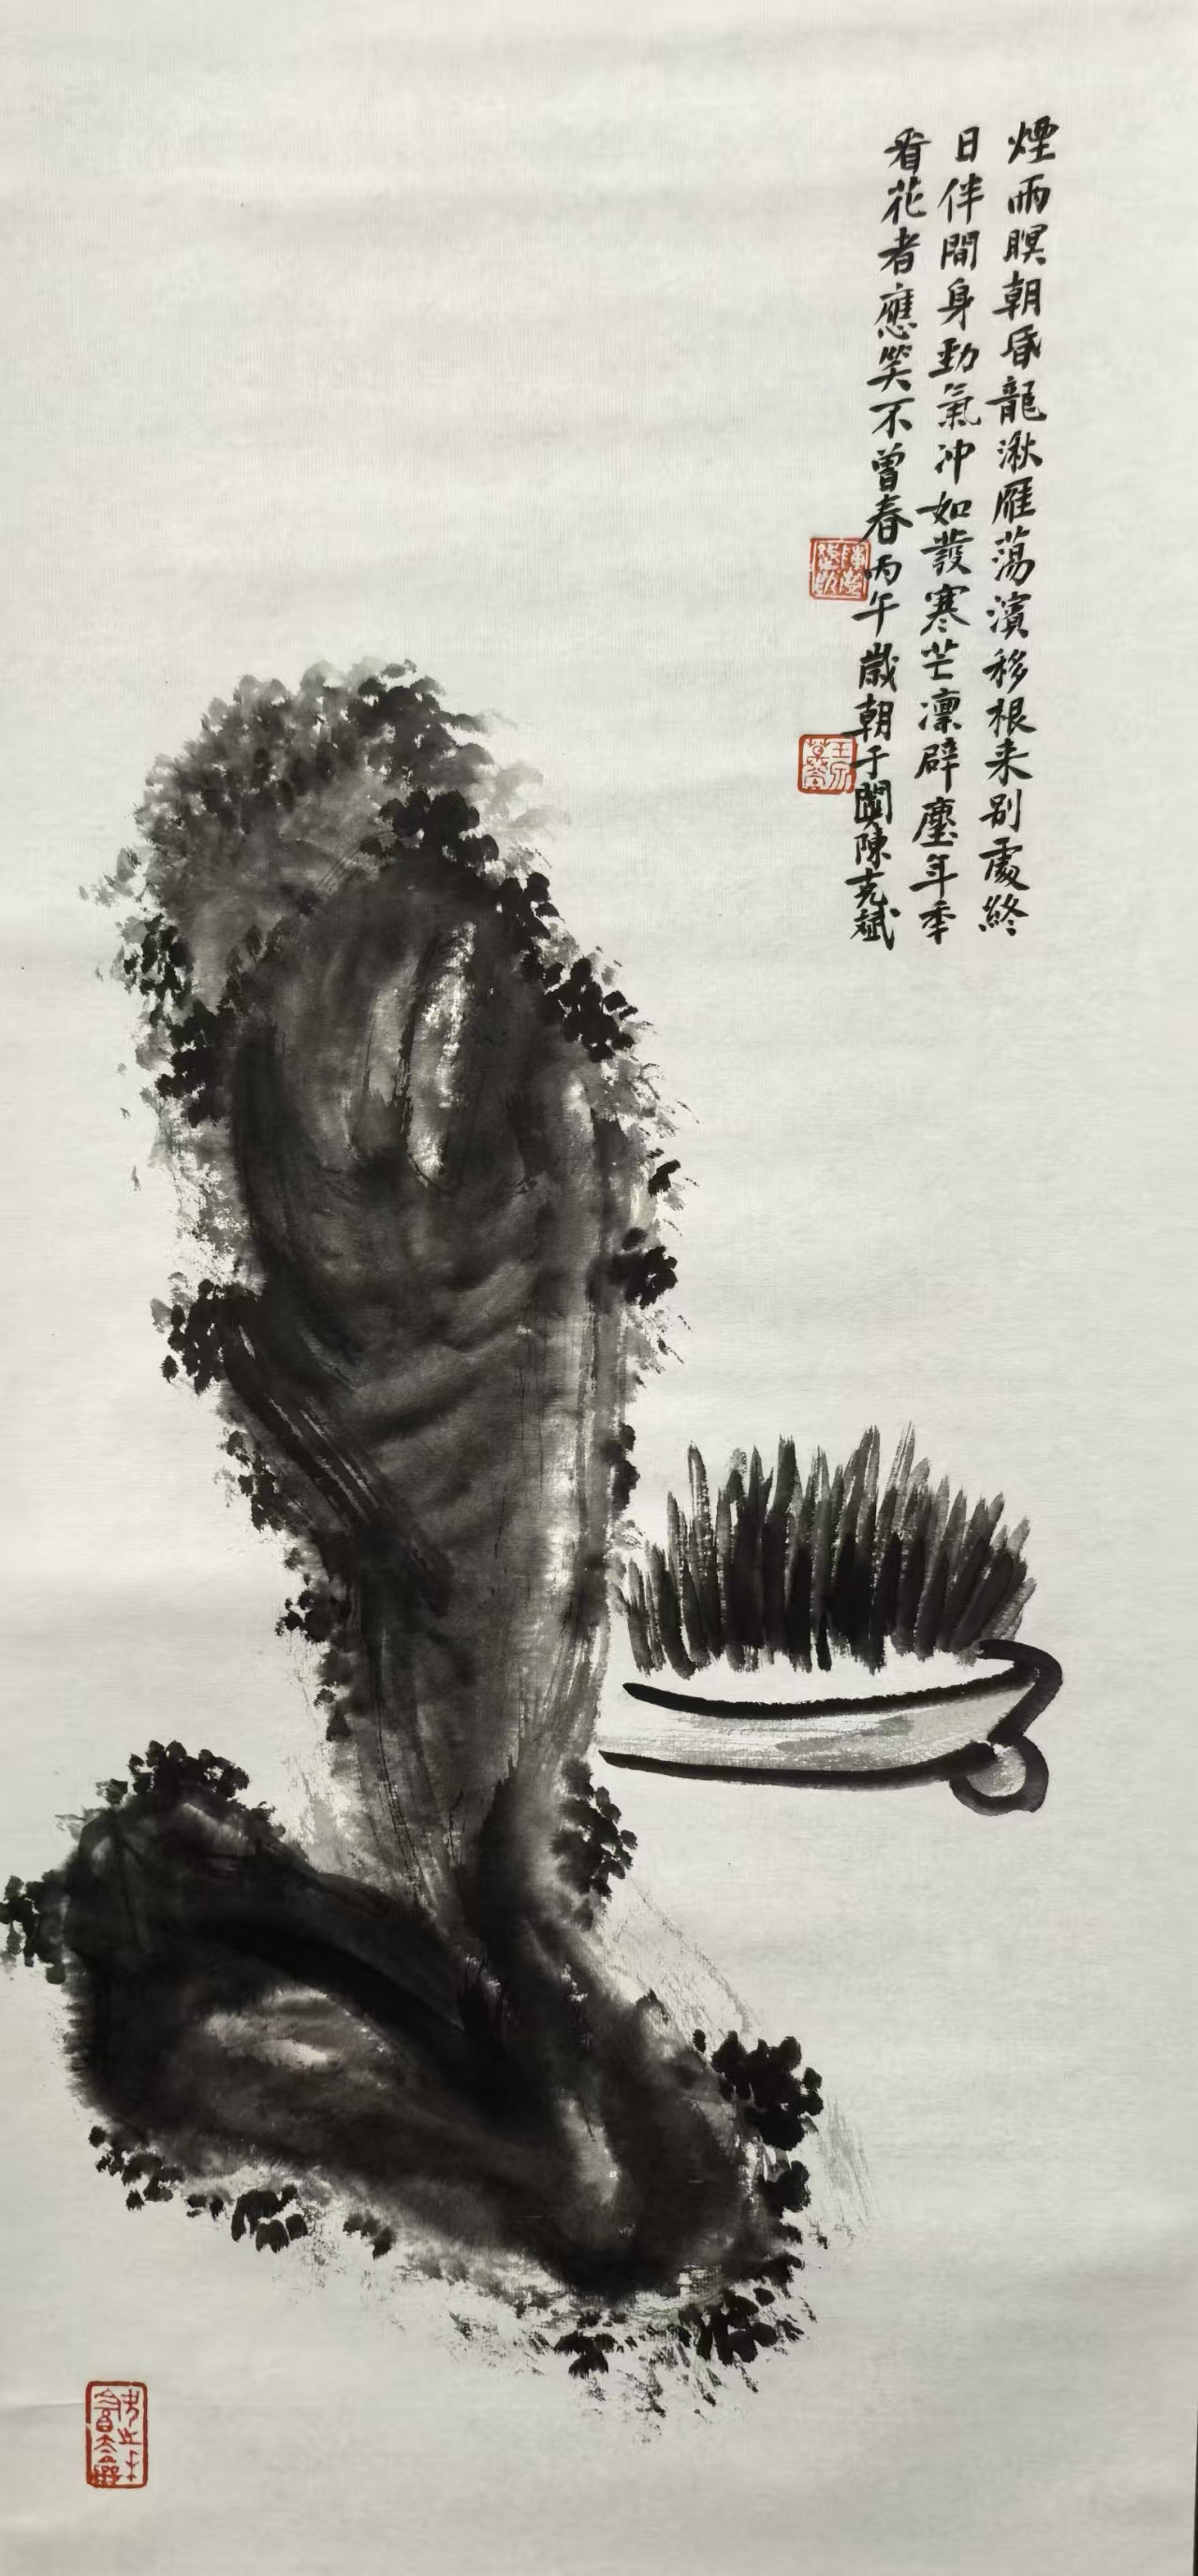 煙雨暝朝昏龍湫雁蕩濱移根来别處終
日伴閒身勁氣冲如發寒芒凛辟塵年季
看花者應笑不曾春丙午歲朝于閩陳克斌